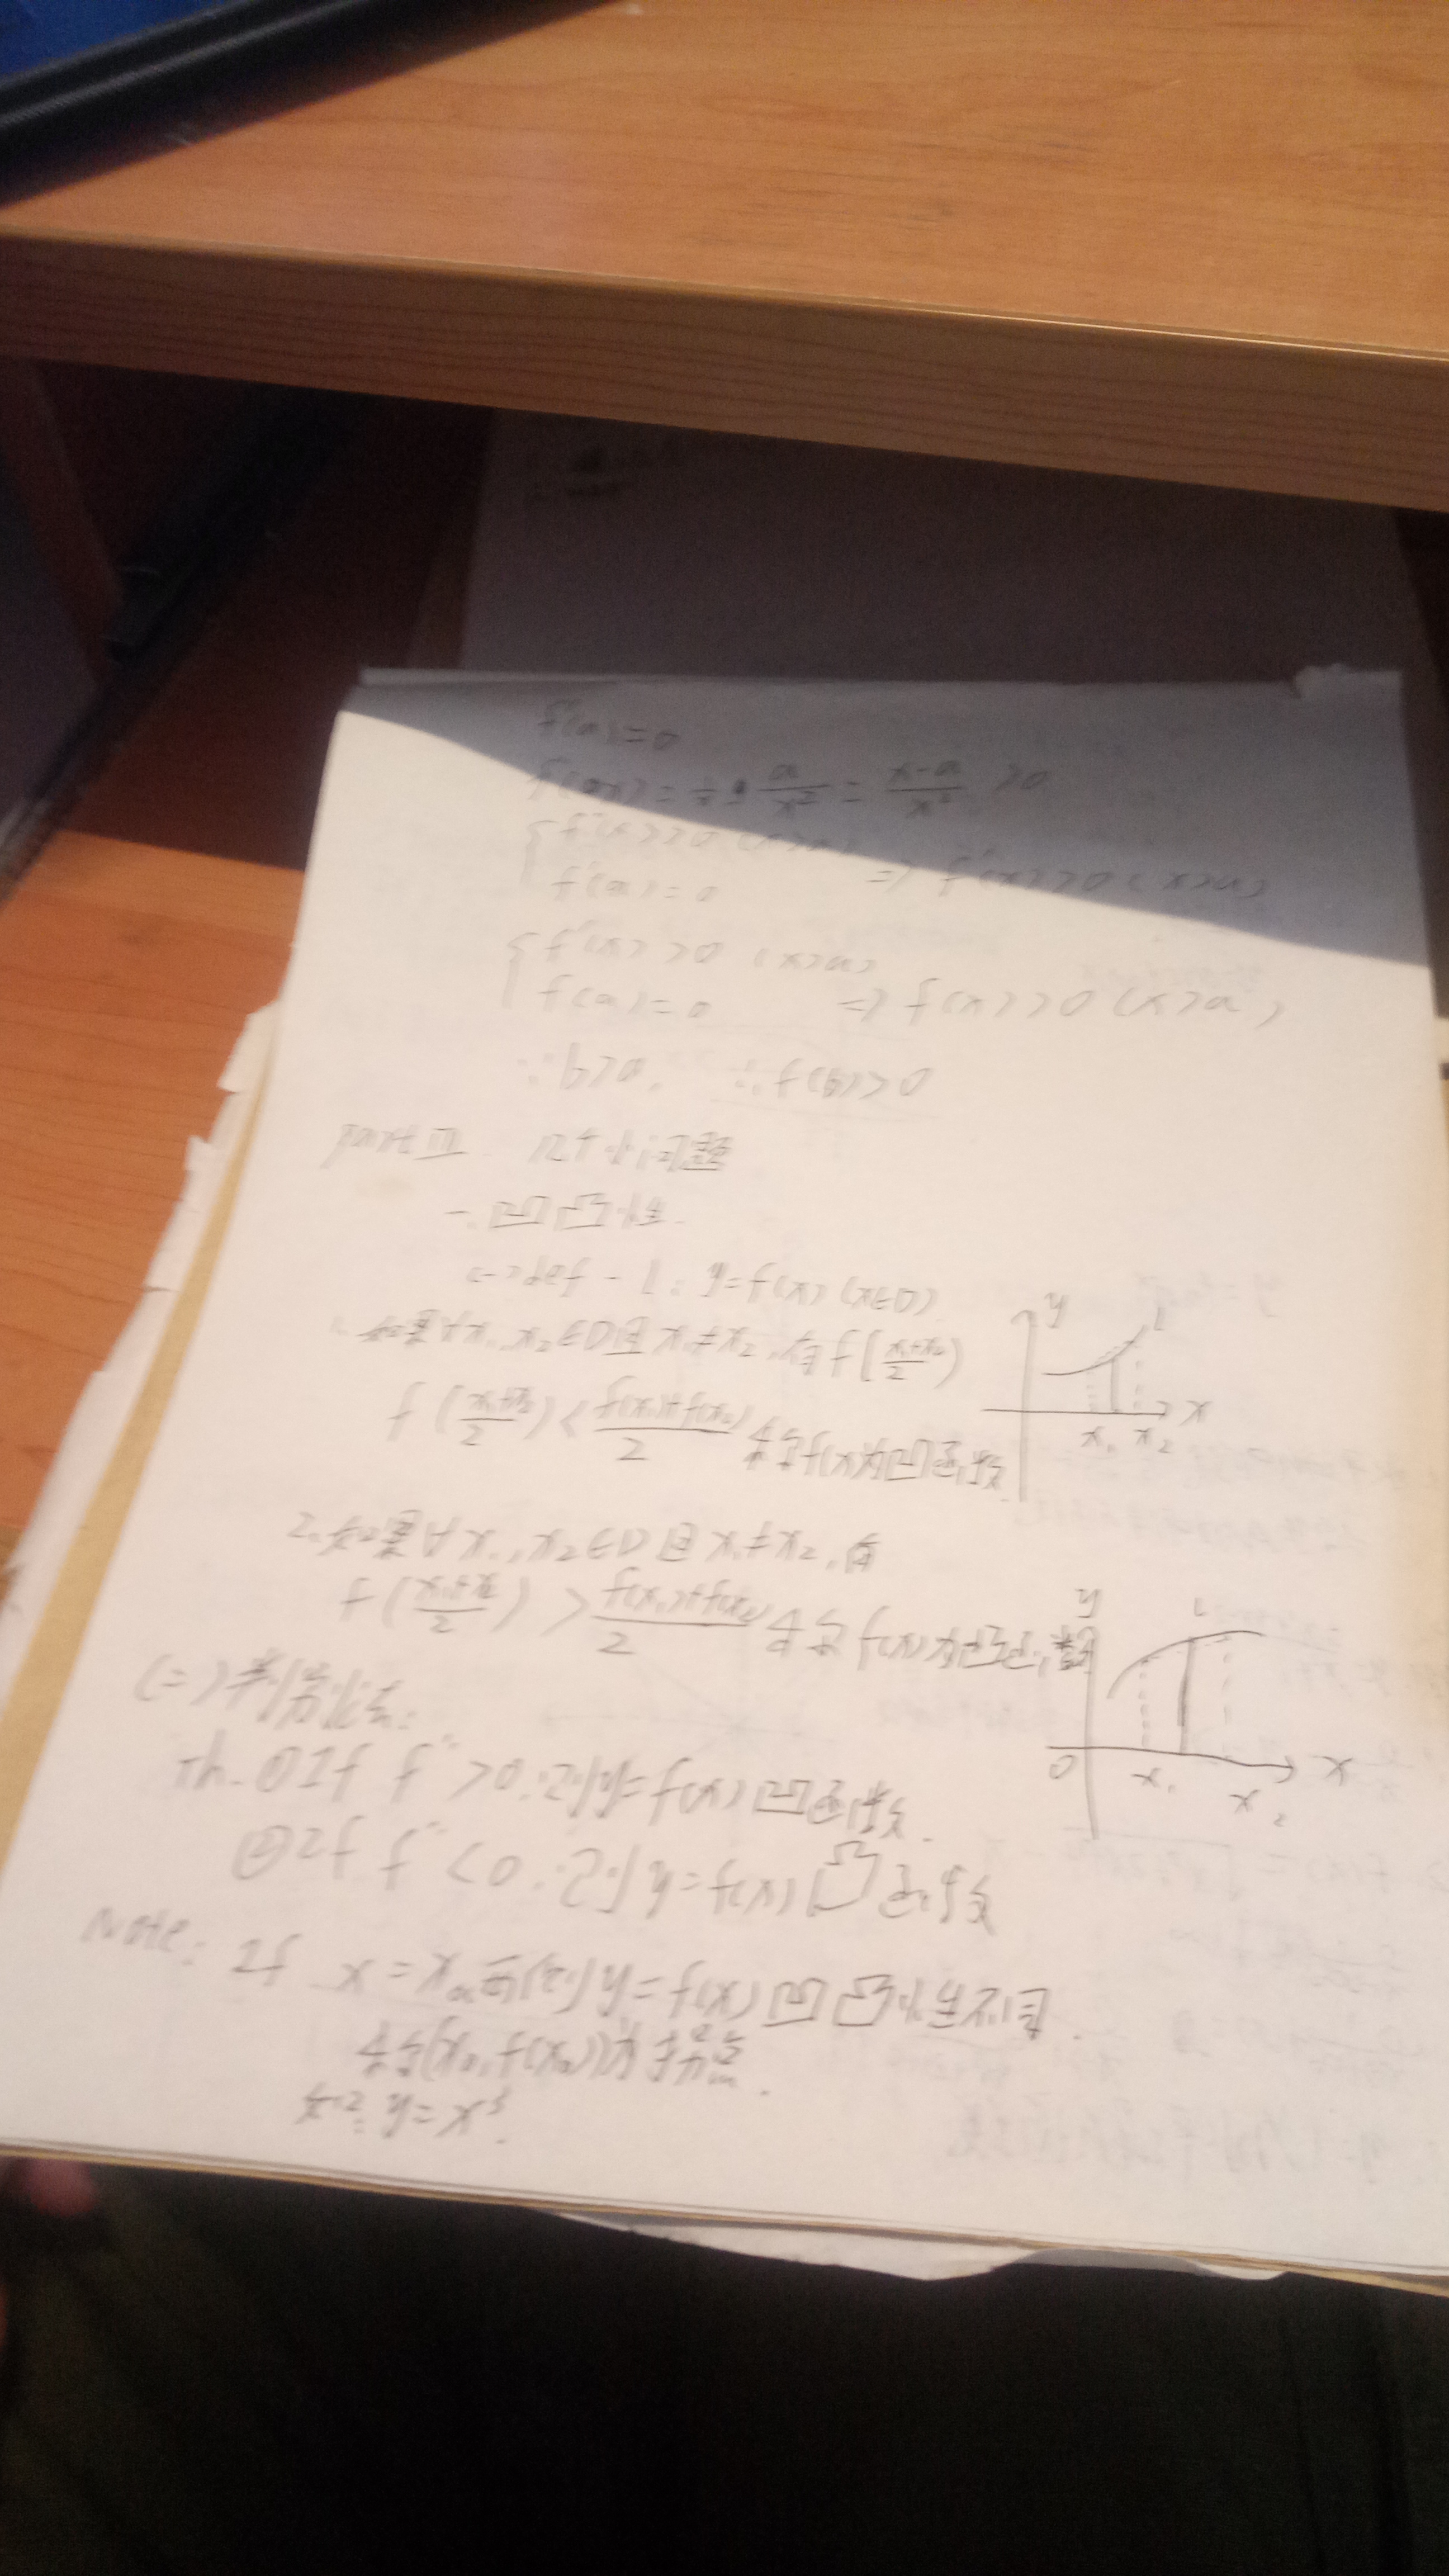 f'(a)=0
f''(x)=1/x - a/x² = (x-a)/x² >0
{ f''(x)>0 (x>a)
f'(a)=0 ⇒ f'(x)>0 (x>a)
{ f'(x)>0 (x>a)
f(a)=0 ⇒ f(x)>0 (x>a)
∵b>a, ∴f(b)>0
part III 几个小问题
一.凹凸性.
(一)def-1: y=f(x) (x∈D)
1.如果∀x₁,x₂∈D且x₁≠x₂,有f((x₁+x₂)/2)
f((x₁+x₂)/2)<(f(x₁)+f(x₂))/2 称f(x)为凹函数.
y L
x₁ x₂ x
2.如果∀x₁,x₂∈D且x₁≠x₂,有
f((x₁+x₂)/2)>(f(x₁)+f(x₂))/2 称f(x)为凸函数
y L
O x₁ x₂ x
(二)判别法:
Th-①If f''>0.则y=f(x)凹函数.
②If f''<0.则y=f(x)凸函数
Note: If x=x₀两侧y=f(x)凹凸性不同.
称(x₀,f(x₀))为拐点.
如: y=x³.